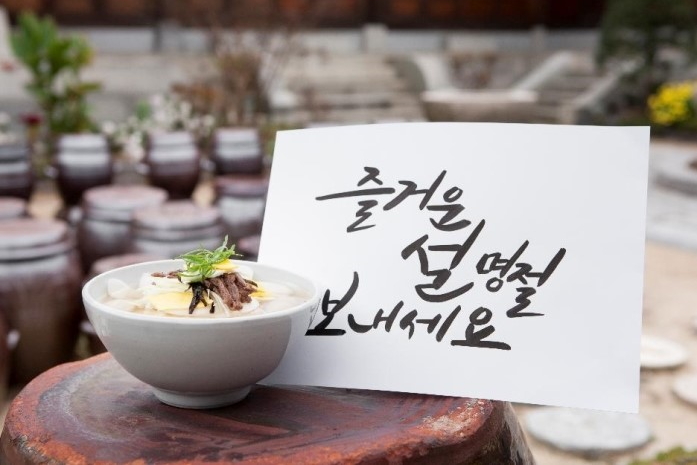 즐거운
설 명절
보내세요